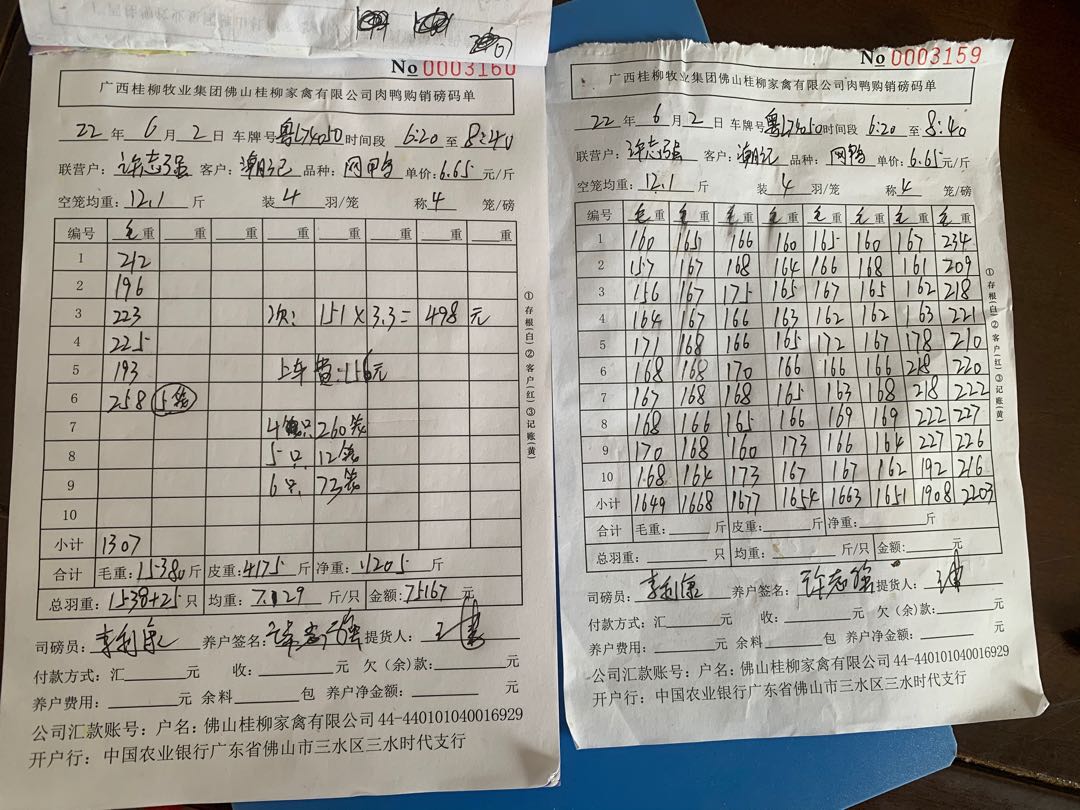 No 0003160
广西桂柳牧业集团佛山桂柳家禽有限公司肉鸭购销磅码单
22 年 6 月 2 日 车牌号 粤J74050 时间段 6:20 至 8:40
联营户: 许志强 客户: 潮记 品种: 单价: 6.65 元/斤
空笼均重: 12.1 斤 装 4 羽/笼 称 4 笼/磅
编号 毛重 重 重 重 重 重 重 重
1 212
2 196
3 223 次: 151×3.3=498元
4 225
5 193 上车费:156元
6 258 (5笼)
7 4只 260笼
8 5只 12笼
9 6只 73笼
10
小计 1307
合计 毛重: 15380 斤 皮重: 4175 斤 净重: 11205 斤
总羽重: 1538+25 只 均重: 7.129 斤/只 金额: 75167 元
司磅员: 李利康 养户签名: 许志强 提货人:
付款方式: 汇 元 收: 元 欠(余)款: 元
养户费用: 元 余料 包 养户净金额: 元
公司汇款账号: 户名: 佛山桂柳家禽有限公司 44-440101040016929
开户行: 中国农业银行广东省佛山市三水区三水时代支行
①存根(白)②客户(红)③记账(黄)
No 0003159
广西桂柳牧业集团佛山桂柳家禽有限公司肉鸭购销磅码单
22 年 6 月 2 日 车牌号 粤J74050 时间段 6:20 至 8:40
联营户: 许志强 客户: 潮记 品种: 单价: 6.65 元/斤
空笼均重: 12.1 斤 装 4 羽/笼 称 4 笼/磅
编号 毛重 毛重 毛重 毛重 毛重 毛重 毛重 毛重
1 160 165 166 160 165 160 167 234
2 157 167 168 164 166 168 161 209
3 156 167 175 165 167 165 162 218
4 164 167 166 163 162 162 163 221
5 171 168 166 165 172 167 178 210
6 168 168 170 166 166 166 218 220
7 167 168 168 165 163 168 218 222
8 168 166 165 166 169 169 222 227
9 170 168 160 173 166 164 227 226
10 168 164 173 167 167 162 192 216
小计 1649 1668 1677 1654 1663 1651 1908 2203
合计 毛重: 斤 皮重: 斤 净重: 斤
总羽重: 只 均重: 斤/只 金额: 元
司磅员: 李利康 养户签名: 许志强 提货人:
付款方式: 汇 元 收: 元 欠(余)款: 元
养户费用: 元 余料 包 养户净金额: 元
公司汇款账号: 户名: 佛山桂柳家禽有限公司 44-440101040016929
开户行: 中国农业银行广东省佛山市三水区三水时代支行
①存根(白)②客户(红)③记账(黄)